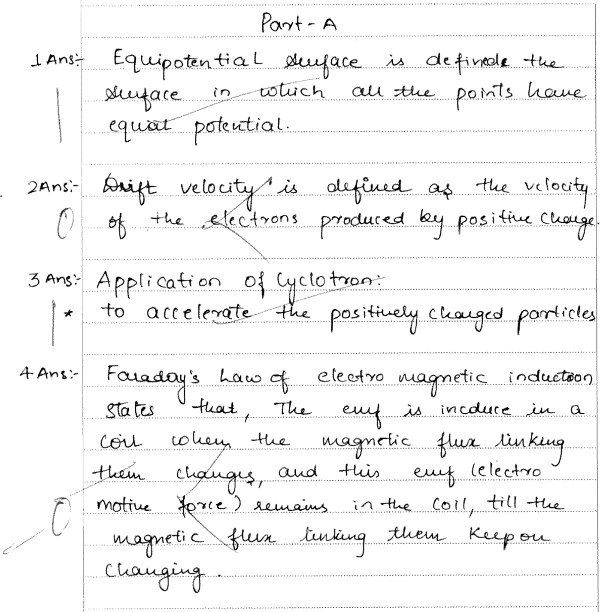 Part-A
1 Ans:- Equipotential surface is defined the
surface in which all the points have
equal potential.
2 Ans:- Drift velocity is defined as the velocity
0 of the electrons produced by positive charge.
3 Ans:- Application of Cyclotron:-
1 * to accelerate the positively charged particles
4 Ans:- Faraday's Law of electro magnetic induction
states that, The emf is incduce in a
coil when the magnetic flux linking
them changes, and this emf (electro
0 motive force) remains in the coil, till the
magnetic flux linking them keep on
changing.